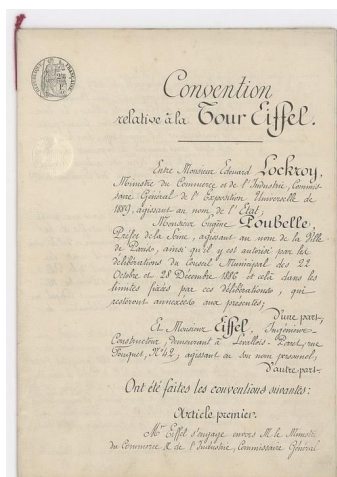 Convention
relative à la Tour Eiffel.
Entre Monsieur Edouard Lockroy,
Ministre du Commerce et de l'Industrie, Commis-
saire Général de l'Exposition Universelle de
1889, agissant au nom de l'Etat,
Monsieur Eugène Poubelle,
Préfet de la Seine, agissant au nom de la Ville
de Paris, ainsi qu'il y est autorisé par les
délibérations du Conseil Municipal des 22
Octobre et 28 Décembre 1886 et cela dans les
limites fixées par ces délibérations, qui
resteront annexées aux présentes;
D'une part,
Et Monsieur Eiffel, Ingénieur-
Constructeur, demeurant à Levallois-Perret, rue
Fouquet, N°42; agissant en son nom personnel,
D'autre part,
Ont été faites les conventions suivantes:
Article premier.
Mr Eiffel s'engage envers M. le Ministre
du Commerce & de l'Industrie, Commissaire Général